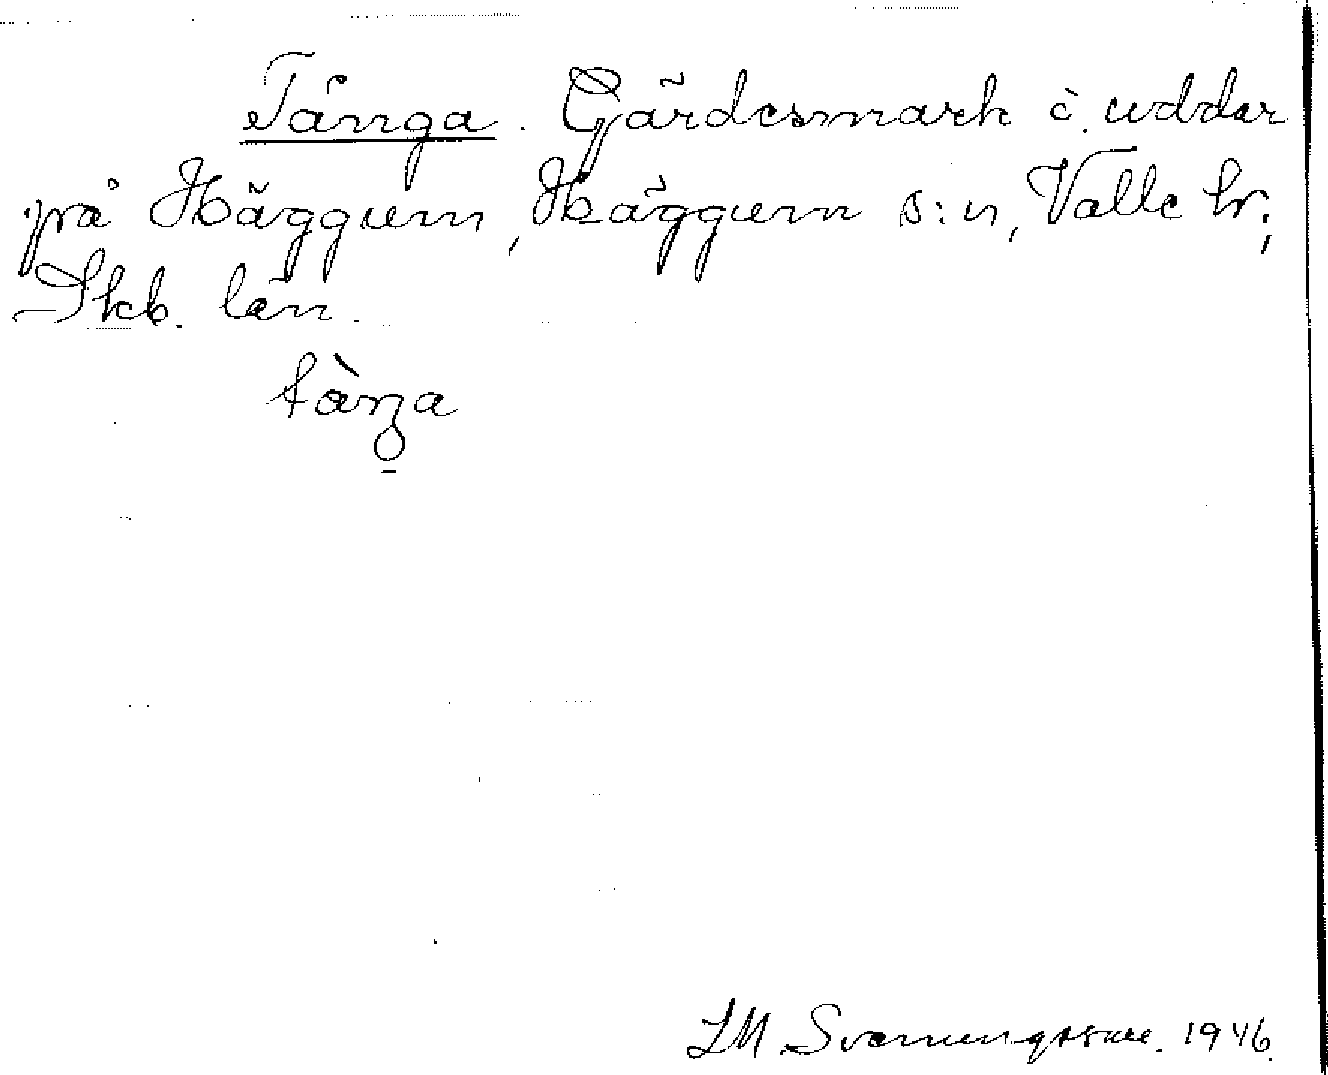 Tånga. Gärdesmark o. uddar
på Häggum, Häggum s:n, Valle hr;
Skb. län.
tàŋa
LM. Svenungsson. 1946.